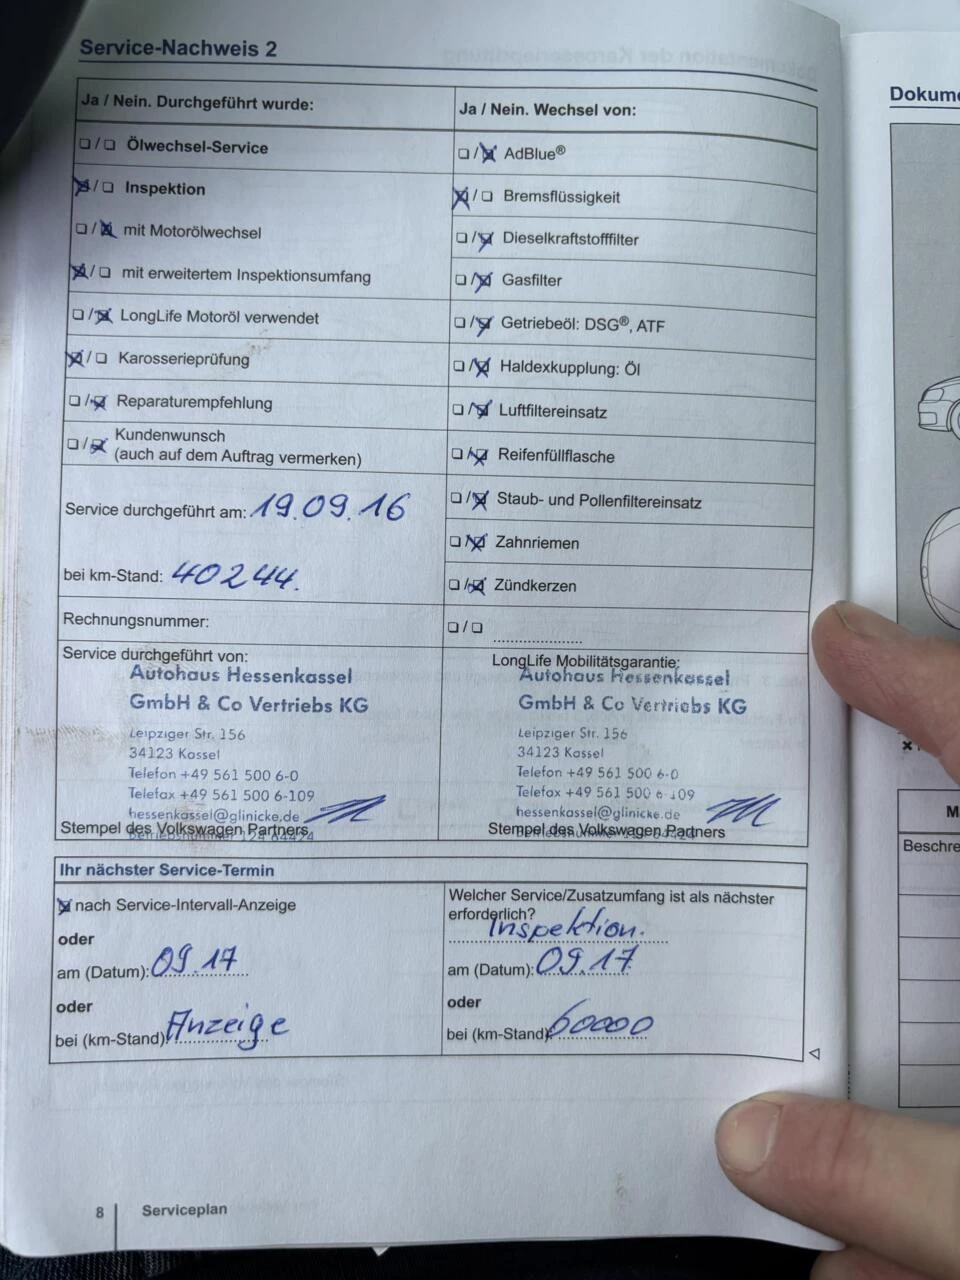 Service-Nachweis 2
Ja / Nein. Durchgeführt wurde:
❏ / ❏ Ölwechsel-Service
☒ / ❏ Inspektion
❏ / ☒ mit Motorölwechsel
☒ / ❏ mit erweitertem Inspektionsumfang
❏ / ☒ LongLife Motoröl verwendet
☒ / ❏ Karosserieprüfung
❏ / ☒ Reparaturempfehlung
❏ / ☒ Kundenwunsch
(auch auf dem Auftrag vermerken)
Service durchgeführt am: 19.09.16
bei km-Stand: 40244.
Rechnungsnummer:
Ja / Nein. Wechsel von:
❏ / ☒ AdBlue®
☒ / ❏ Bremsflüssigkeit
❏ / ☒ Dieselkraftstofffilter
❏ / ☒ Gasfilter
❏ / ☒ Getriebeöl: DSG®, ATF
❏ / ☒ Haldexkupplung: Öl
❏ / ☒ Luftfiltereinsatz
❏ / ☒ Reifenfüllflasche
❏ / ☒ Staub- und Pollenfiltereinsatz
❏ / ☒ Zahnriemen
❏ / ☒ Zündkerzen
❏ / ❏ ....................
Service durchgeführt von:
Autohaus Hessenkassel
GmbH & Co Vertriebs KG
Leipziger Str. 156
34123 Kassel
Telefon +49 561 500 6-0
Telefax +49 561 500 6-109
hessenkassel@glinicke.de
Stempel des Volkswagen Partners
LongLife Mobilitätsgarantie:
Autohaus Hessenkassel
GmbH & Co Vertriebs KG
Leipziger Str. 156
34123 Kassel
Telefon +49 561 500 6-0
Telefax +49 561 500 6-109
hessenkassel@glinicke.de
Stempel des Volkswagen Partners
Ihr nächster Service-Termin
☒ nach Service-Intervall-Anzeige
oder
am (Datum): 09.17
oder
bei (km-Stand): Anzeige
Welcher Service/Zusatzumfang ist als nächster
erforderlich?
Inspektion.
am (Datum): 09.17
oder
bei (km-Stand): 60000
8
Serviceplan